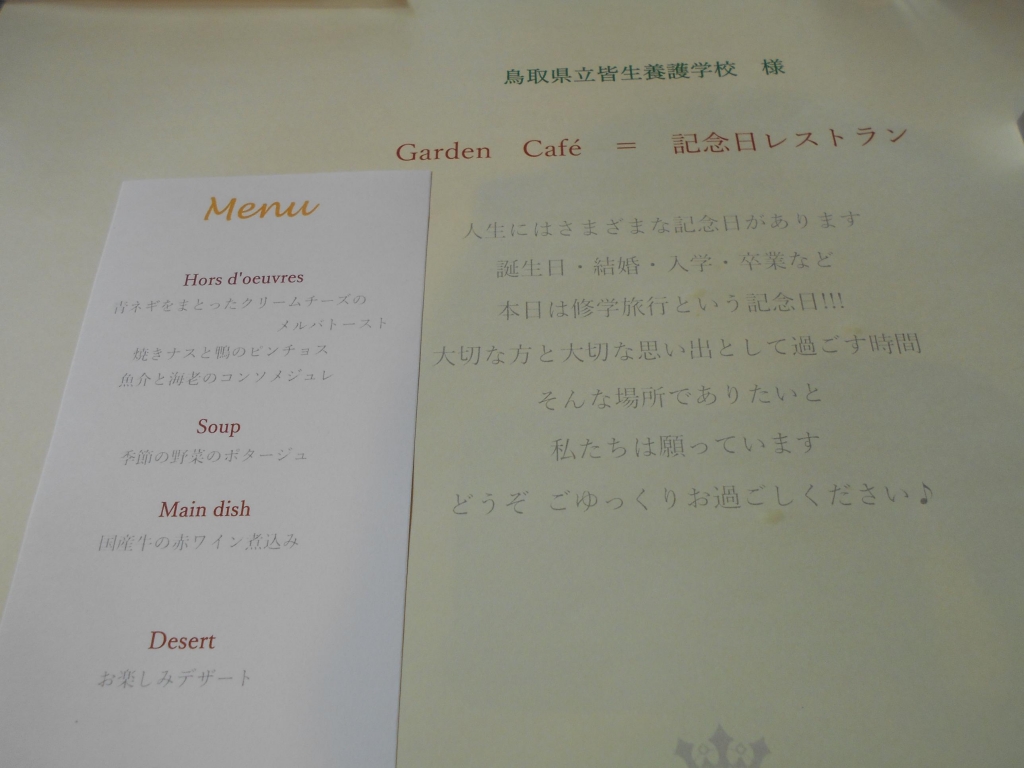 鳥取県立皆生養護学校 様
Garden Café = 記念日レストラン
人生にはさまざまな記念日があります
誕生日・結婚・入学・卒業など
本日は修学旅行という記念日!!!
大切な方と大切な思い出として過ごす時間
そんな場所でありたいと
私たちは願っています
どうぞ ごゆっくりお過ごしください♪
Menu
Hors d'oeuvres
青ネギをまとったクリームチーズの
メルバトースト
焼きナスと鴨のピンチョス
魚介と海老のコンソメジュレ
Soup
季節の野菜のポタージュ
Main dish
国産牛の赤ワイン煮込み
Desert
お楽しみデザート